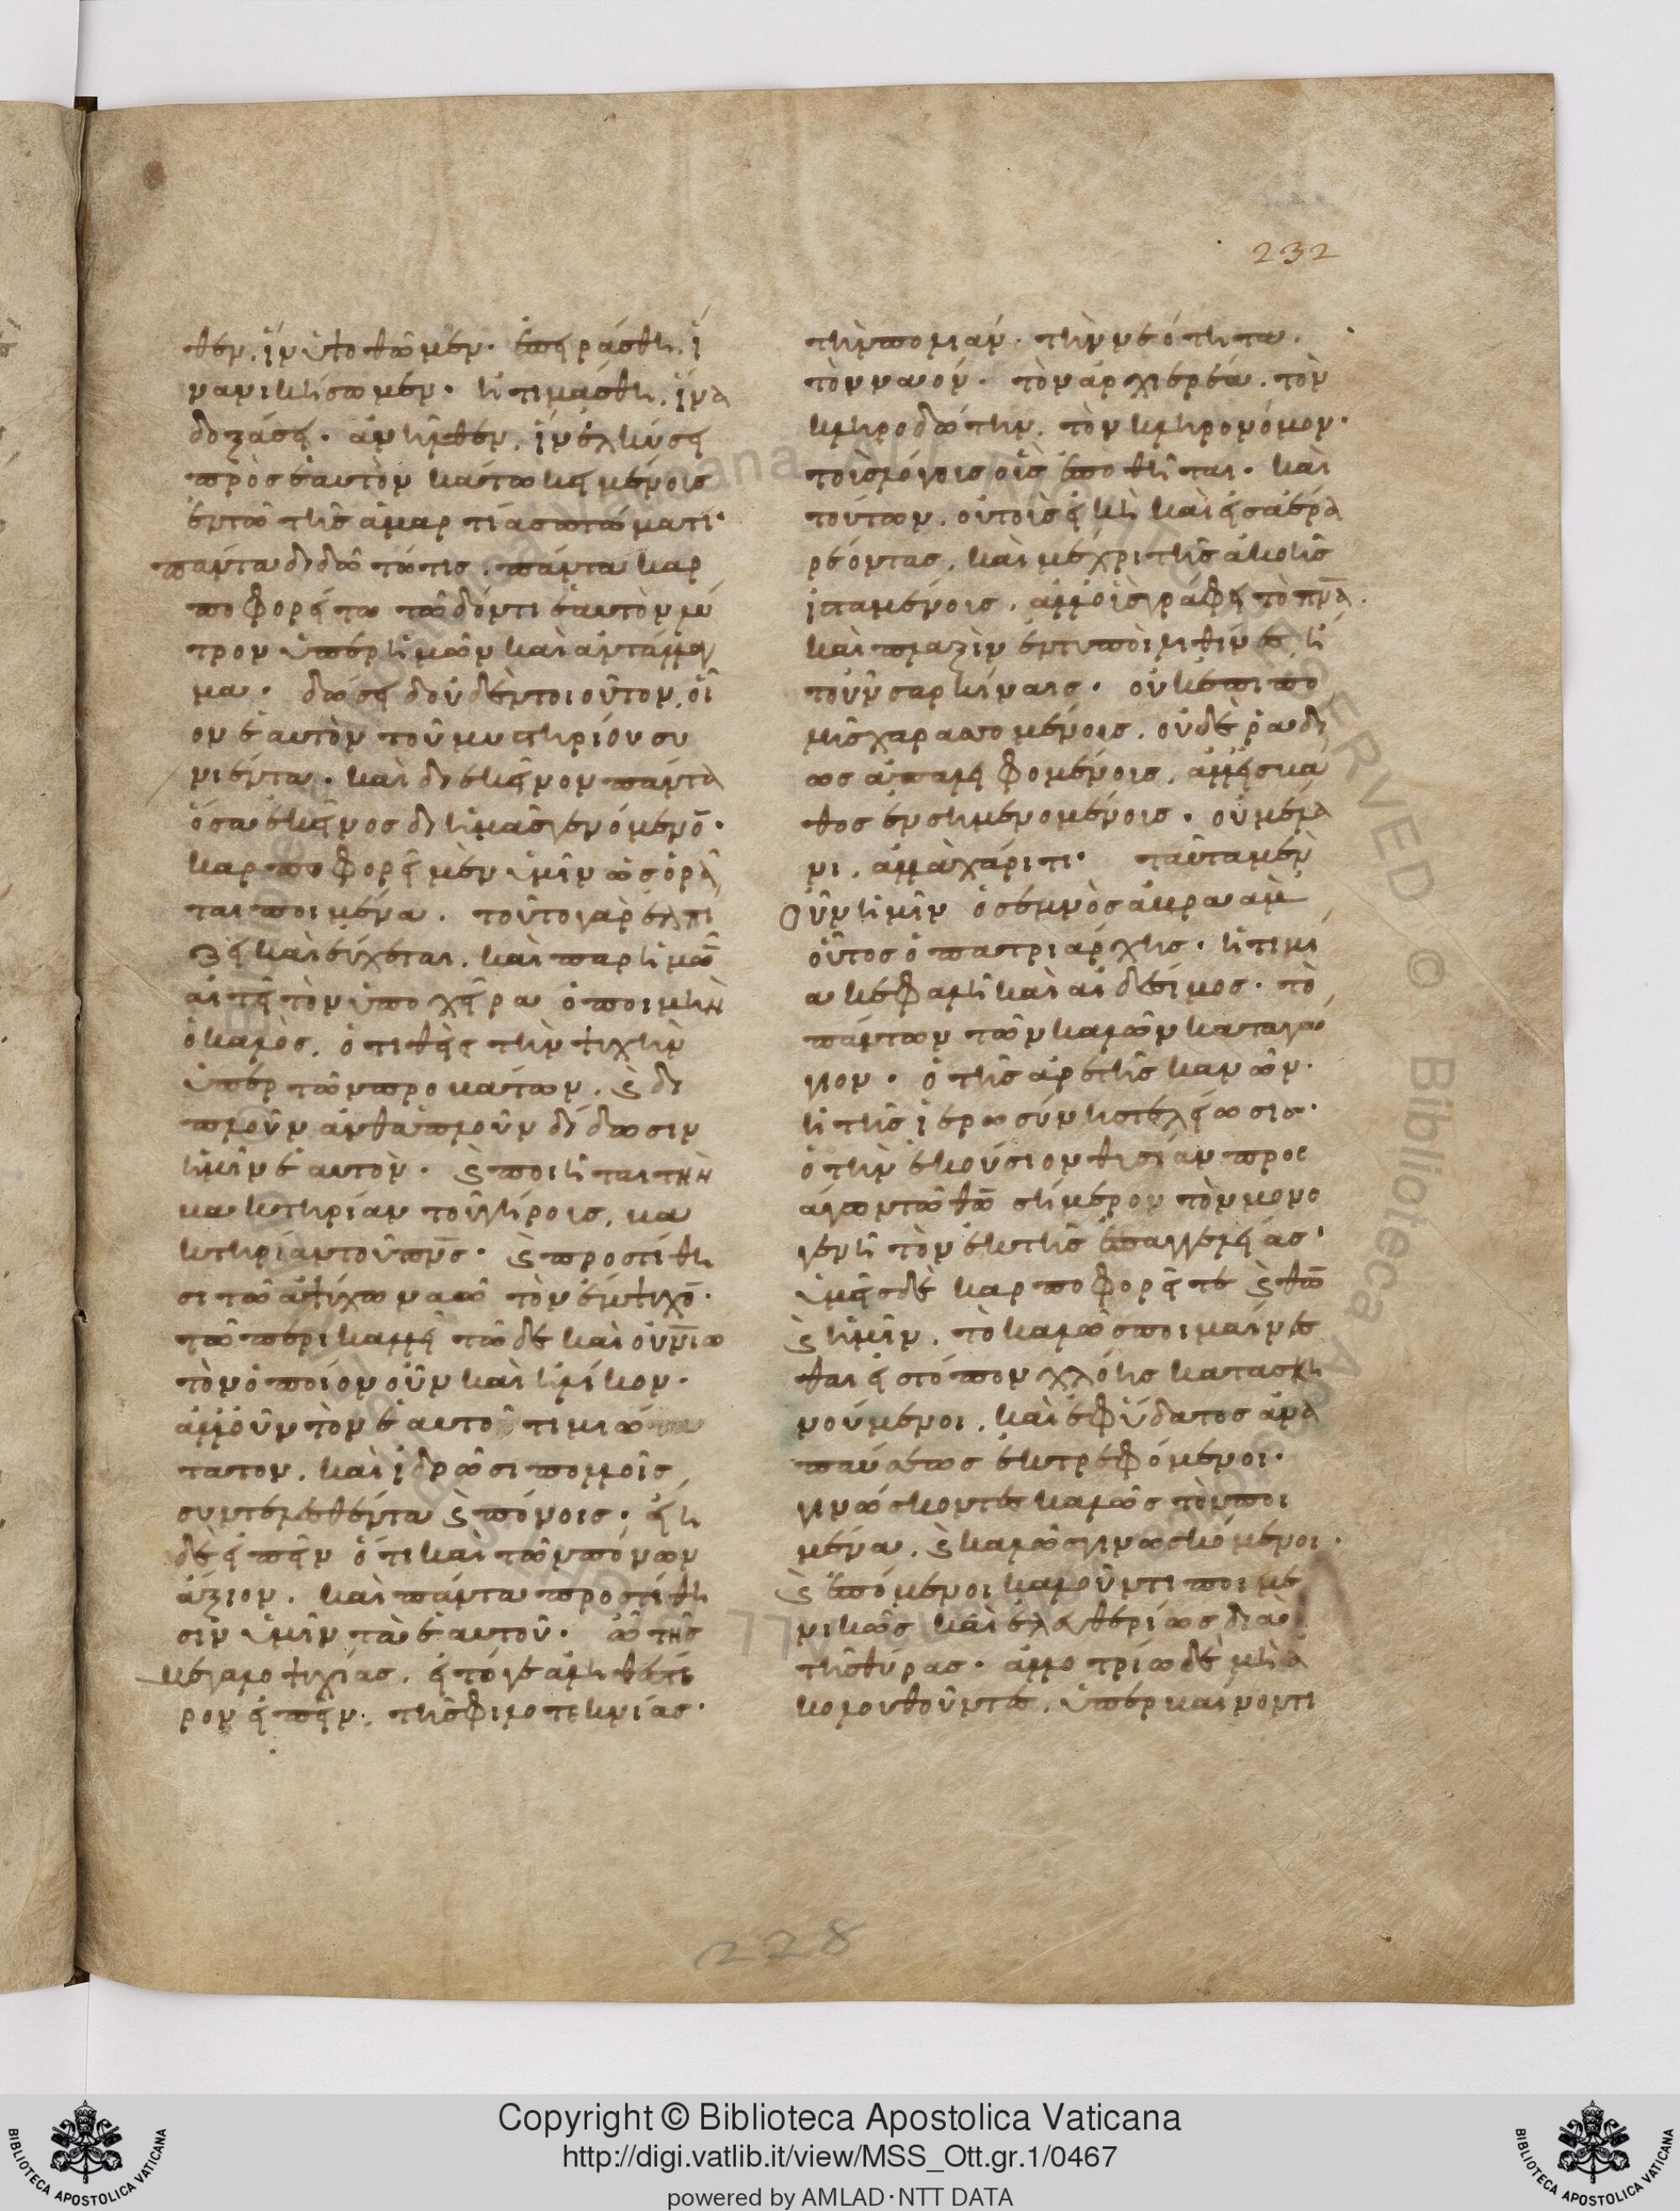 232
θεν. ἵν ὑψωθῶμεν· ἐπειράσθη. ἵ
να νικήσωμεν· ἠτιμάσθη. ἵνα
δοξάσει· ἀνῆλθεν. ἵν ἑλκύσει
πρὸς ἑαυτὸν κάτω κειμένοις
ἐν τῶ τῆς ἁμαρτίας πτώματι·
πάντα διδῶ τω τις. πάντα καρ
ποφορείτω τῶ δόντι ἑαυτὸν λύ
τρον ὑπὲρ ἡμῶν καὶ ἀντάλλαγ
μα· δώσει δ οὐδὲν τοιοῦτον. οἷ
ον ἑαυτὸν τοῦ μυστηρίου συ
νιέντα. καὶ δι ἐκεῖνον πάντα
ὅσα ἐκεῖνος δι ἡμᾶς γενόμενο̄·
καρποφορεῖ μὲν ὑμῖν ὡς ὁρᾶ
ται ποιμένα. τοῦτο γὰρ ἐλπί
ζει καὶ εὔχεται. καὶ παρ ἡμῶ̄
αἰτεῖ τὸν ὑπο χεῖρα ὁ ποιμὴν
ὁ καλὸς. ὁ τιθεὶς τὴν ψυχὴν
ὑπὲρ τῶν προβάτων. ϛ̀ δι
πλοῦν ἀνθ ἁπλοῦν δίδωσιν
ἡμῖν ἑαυτὸν· ϛ̀ ποιῆται τὴν
βακτηρίαν τοῦ γήροις. βα
κτηρίαν τοῦ πν̄ς· ϛ̀ προστίθη
σι τῶ ἀψύχω ναῶ τὸν ἔμψυχο̄·
τῶ περικαλλεῖ τῶδε καὶ οὐν̄ιω
τὸν ὁποίον οὖν καὶ ἡλίκον.
ἀλλ οὖν τὸν ἑαυτοῦ τιμιώ
τατον. καὶ ἱδρῶσι πολλοῖς
συντελεσθέντα ϛ̀ πόνοις. εἴη
δὲ εἰπεῖν ὅτι καὶ τῶν πόνων
ἄξιον. καὶ πάντα προστίθη
σιν ὑμῖν τὰ ἑαυτοῦ. ὢ τῆς
μεγαλοψυχίας. εἰ τό γε ἀληθέστε
ρον εἰπεῖν. τῆς φιλοτεκνίας·
τὴν πολιάν. τὴν νεότητα.
τὸν ναόν. τὸν ἀρχιερέα. τὸν
κληροδώτην. τὸν κληρονόμον·
τοὶς λόγοις οἷς ἐποθῆται. καὶ
τούτων. οὐ τοὶς εἰκῆ καὶ εἰς ἀέρα
ρέοντας. καὶ μέχρι τῆς ἀκοῆς
ἱσταμένοις. ἀλλ οἷς γράφει τὸ πν̄α.
καὶ πλαξὶν ἐντυποῖ λιθίναις ἤ
τουν σαρκίναις. οὐκ ἐπιπο
λῆς χαρασσομένοις. οὐδὲ ῥαδί
ως ἀπαλειφομένοις. ἀλλ εἰς βά
θος ἐνσημενομένοις. οὐ μέλα
νι. ἀλλὰ χάριτι· ταῦτα μὲν
οὖν ἡμῖν ὁ σεμνὸς ἀβρααμ
οὗτος ὁ πατριάρχης. ἡ τιμί
α κεφαλὴ καὶ αἰδέσιμος. τὸ
πάντων τῶν καλῶν καταγώ
γιον. ὁ τῆς ἀρετῆς κανών.
ἡ τῆς ἱερωσύνης τελείωσις·
ὁ τὴν ἑκούσιον θυσίαν προσ
άγων τῶ θω̄ σήμερον τὸν μονο
γενῆ τὸν ἐκ τῆς ἐπαγγελείας·
ὑμεῖς δὲ καρποφορεῖτε ϛ̀ θω̄
ϛ̀ ἡμῖν. τὸ καλῶς ποιμαίνεσ
θαι εἰς τόπον χλόης κατασκη
νούμενοι. καὶ ἐφ ὕδατος ἀνα
παύσεως ἐκτρεφόμενοι.
γινώσκοντες καλῶς τὸν ποι
μένα. ϛ̀ καλῶς γινωσκόμενοι.
ϛ̀ ἑπόμενοι καλοῦντι ποιμε
νικῶς καὶ ἐλευθερίως διὰ
τῆς θύρας. ἀλλοτρίω δὲ μὴ ἀ
κολουθοῦντες. ὑπερβαίνοντι
228
Copyright © Biblioteca Apostolica Vaticana
http://digi.vatlib.it/view/MSS_Ott.gr.1/0467
powered by AMLAD·NTT DATA
BIBLIOTECA APOSTOLICA VATICANA
BIBLIOTECA APOSTOLICA VATICANA